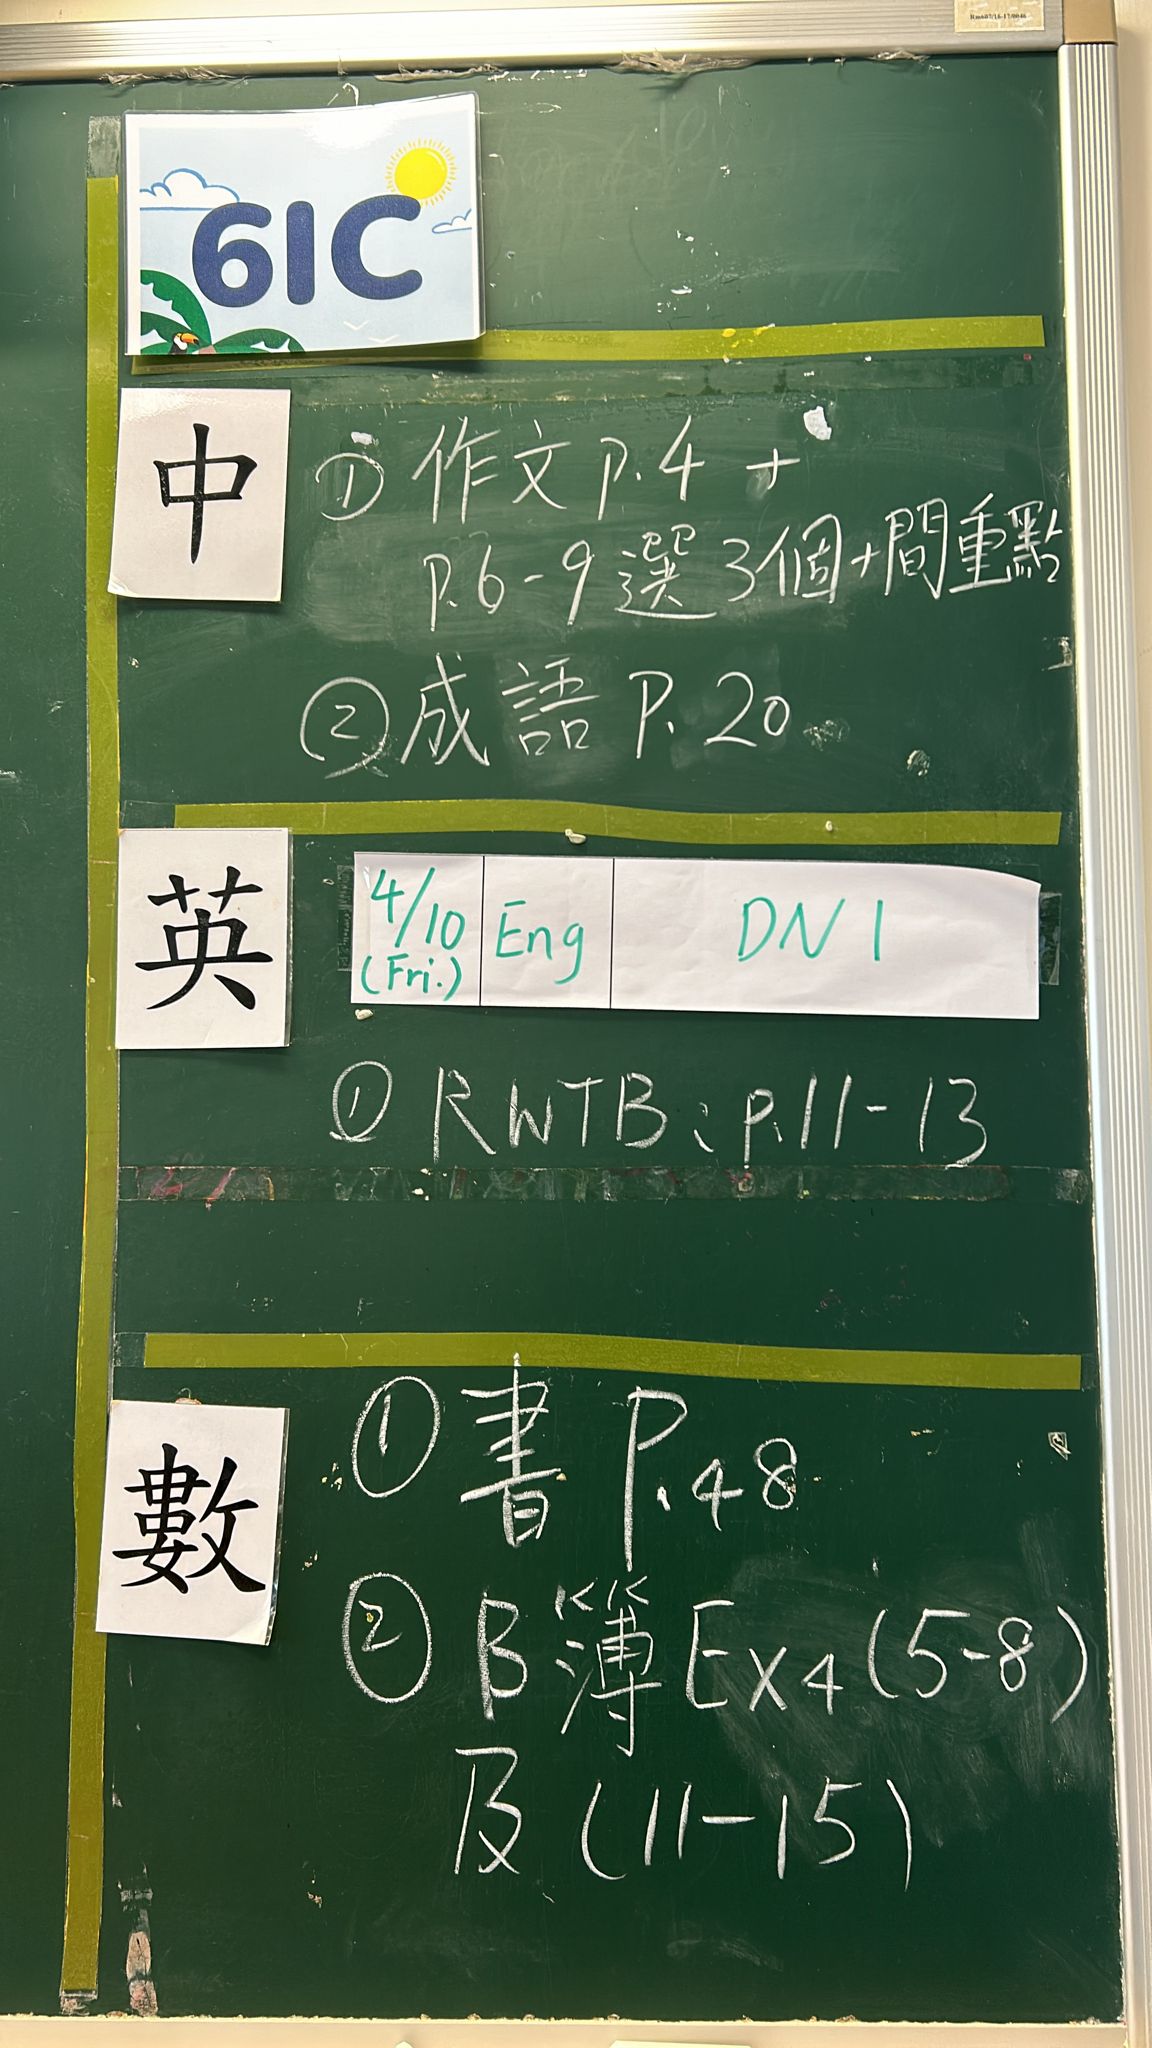 61C
中
① 作文 P.4 +
P.6-9 選3個+間重點
② 成語 P.20
英
4/10 (Fri.) Eng DN 1
① RWTB : p.11-13
數
① 書 P.48
② B簿 Ex4 (5-8)
及 (11-15)